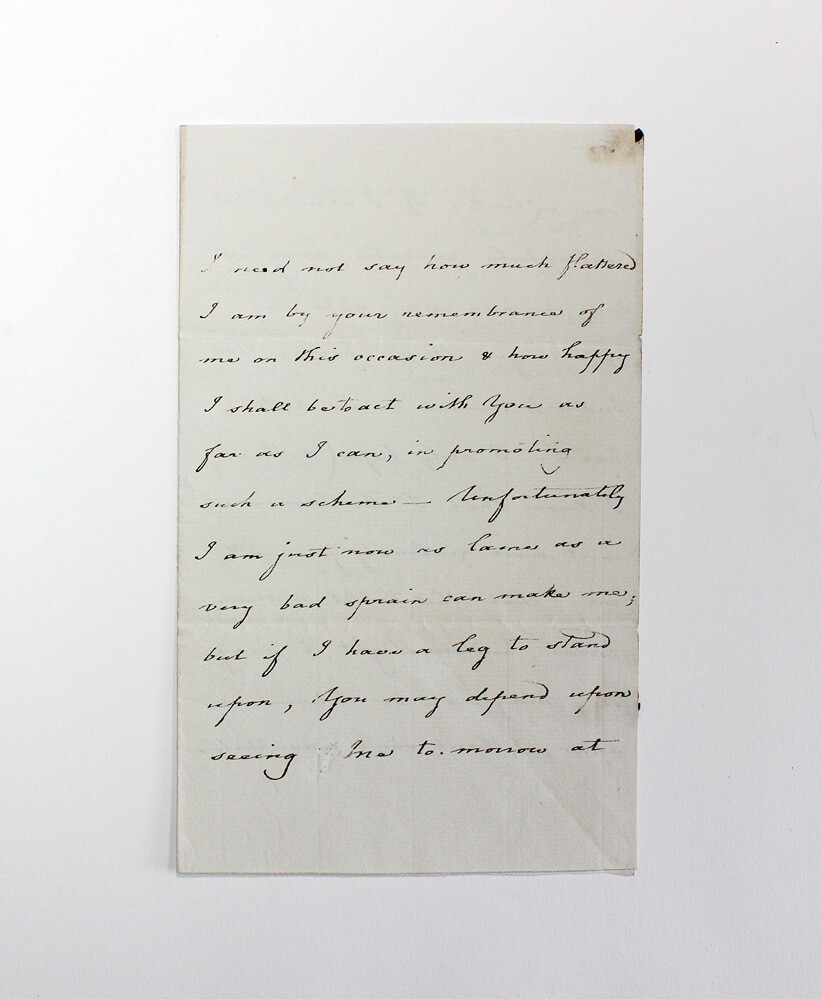 I need not say how much flattered
I am by your remembrance of
me on this occasion & how happy
I shall be to act with You as
far as I can, in promoting
such a scheme — Unfortunately
I am just now as lame as a
very bad sprain can make me;
but if I have a leg to stand
upon, You may depend upon
seeing me to-morrow at